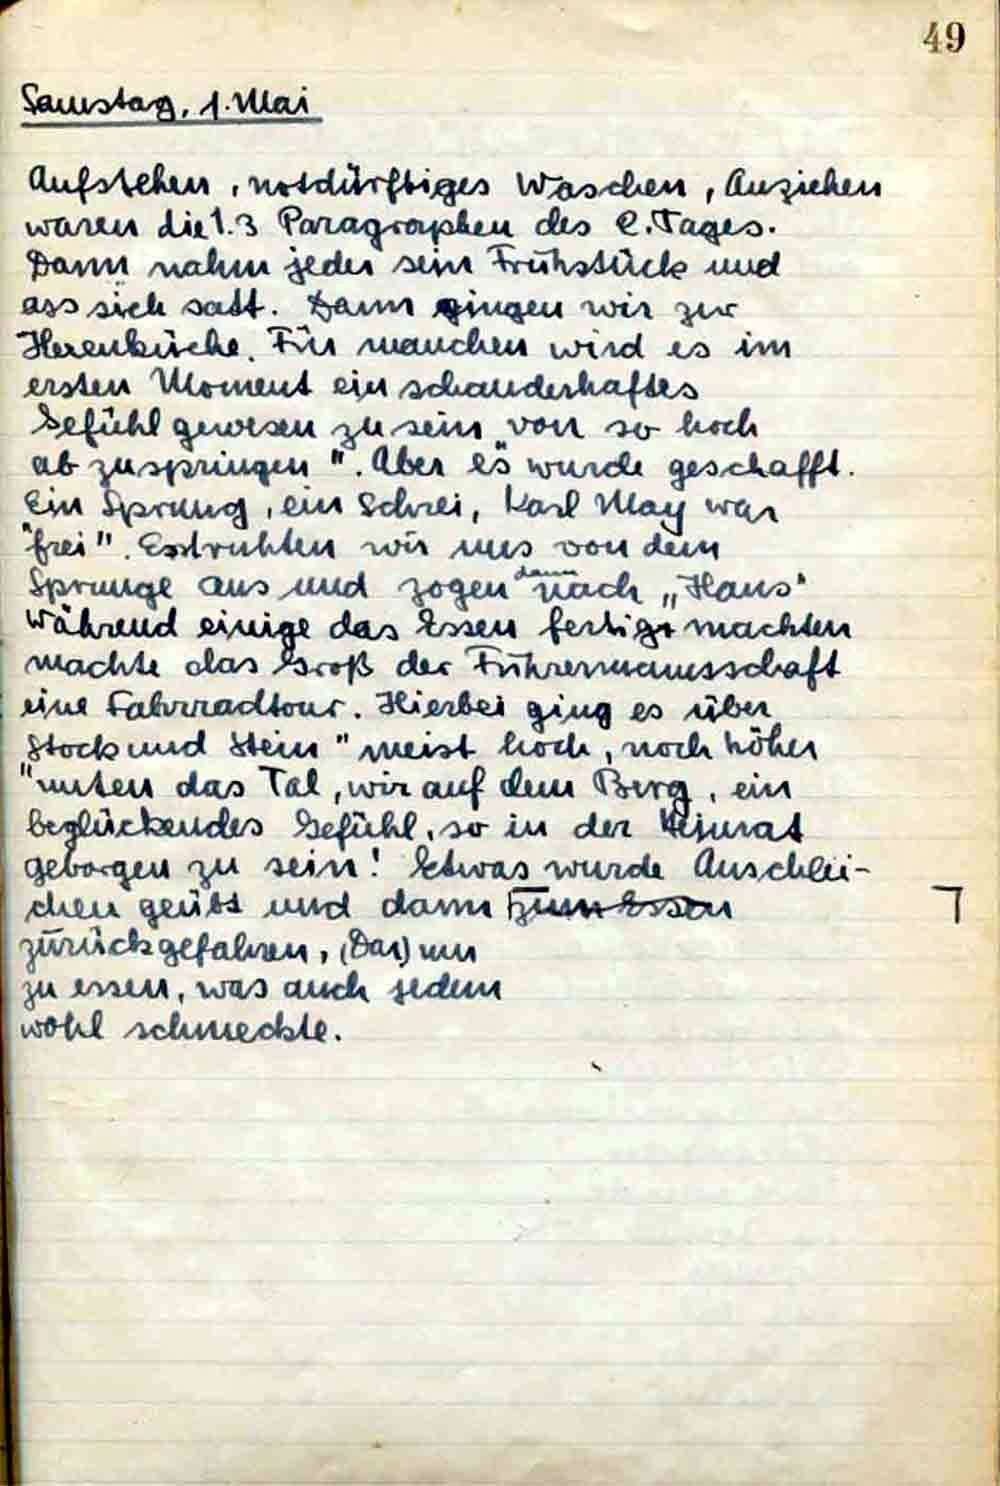 49
Samstag, 1. Mai
Aufstehen, notdürftiges Waschen, Anziehen
waren die 1. 3 Paragraphen des 2. Tages.
Dann nahm jeder sein Frühstück und
ass sich satt. Dann gingen wir zur
Hexenküche. Für manchen wird es im
ersten Moment ein schauderhaftes
Gefühl gewesen zu sein "von so hoch
ab zuspringen". Aber es wurde geschafft.
Ein Sprung, ein Schrei, Karl May war
"frei". Erst ruhten wir uns von dem
Sprunge aus und zogen dann nach „Haus"
Während einige das Essen fertig machten
machte das Groß der Führermannsschaft
eine Fahrradtour. Hierbei ging es über
"Stock und Stein" meist hoch, noch höher
"unten das Tal, wir auf dem Berg, ein
beglückendes Gefühl, so in der Heimat
geborgen zu sein! Etwas wurde Anschlei-
chen geübt und dann zum Essen
zurückgefahren, (Dar) um
zu essen, was auch jedem
wohl schmeckte.